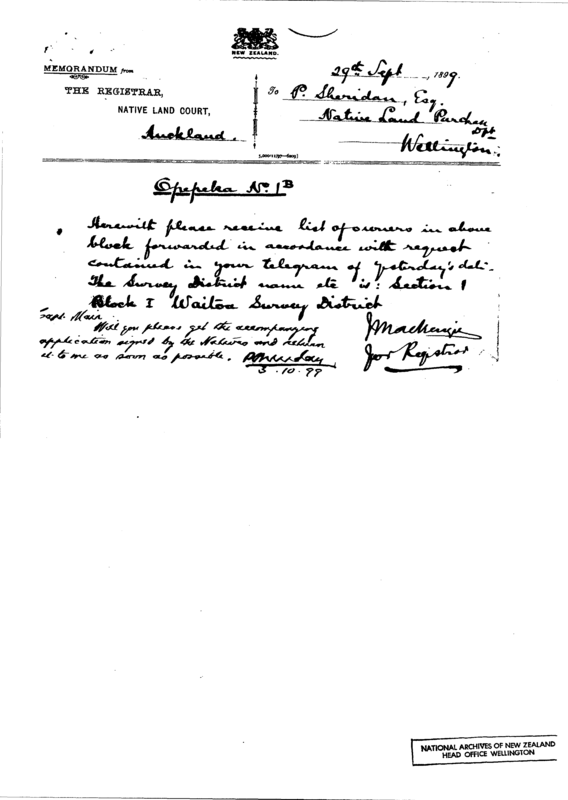 NEW ZEALAND.
MEMORANDUM from
THE REGISTRAR,
NATIVE LAND COURT,
Auckland.
29th Sept, 1899.
To P. Sheridan, Esq.
Native Land Purchase
Dpt
Wellington.
Opepeka No 1B
Herewith please receive list of owners in above
block forwarded in accordance with request
contained in your telegram of yesterday's date.
The Survey District name etc is: Section 1
Block I Waitoa Survey District
JMackenzie
for Registrar
Capt. Mair
Will you please get the accompanying
application signed by the Natives and return
it to me as soon as possible.
3.10.99
NATIONAL ARCHIVES OF NEW ZEALAND
HEAD OFFICE WELLINGTON